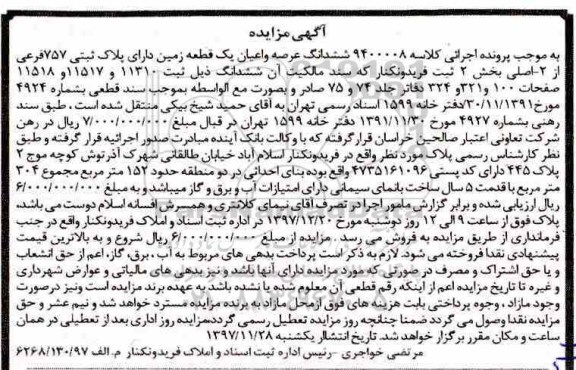 آگهی مزایده
به موجب پرونده اجرائی کلاسه ۹۴۰۰۰۰۸ ششدانگ عرصه واعیان یک قطعه زمین دارای پلاک ثبتی ۷۵۷فرعی
از ۲-اصلی بخش ۲ ثبت فریدونکنار که سند مالکیت آن ششدانگ ذیل ثبت ۱۱۳۱۰ و ۱۱۵۱۷و ۱۱۵۱۸
صفحات ۱۰۰ و۳۲۱و ۳۲۴ دفاتر جلد ۷۴ و ۷۵ صادر و بصورت مع الواسطه بموجب سند قطعی بشماره ۴۹۲۴
مورخ۳۰/۱۱/۱۳۹۱دفتر خانه ۱۵۹۹ اسناد رسمی تهران به آقای حمید شیخ بیکی منتقل شده است ، طبق سند
رهنی بشماره ۴۹۲۷ مورخ ۱۳۹۱/۱۱/۳۰ دفتر خانه ۱۵۹۹ تهران در قبال مبلغ ۷/۰۰۰/۰۰۰/۰۰۰ ریال در رهن
شرکت تعاونی اعتبار صالحین خراسان قرار گرفته که با وکالت بانک آینده مبادرت صدور اجرائیه قرار گرفته و طبق
نظر کارشناس رسمی پلاک مورد نظر واقع در فریدونکنار اسلام آباد خیابان طالقانی شهرک آذرتوش کوچه موج ۲
پلاک ۴۴۵ دارای کد پستی ۴۷۳۵۱۶۱۰۹۶ واقع بوده بنای احداثی در دو منطقه حدود ۱۵۲ متر مربع مجموع ۳۰۴
متر مربع با قدمت ۵ سال ساخت بانمای سیمانی دارای امتیازات آب و برق و گاز میباشد و به مبلغ ۶/۰۰۰/۰۰۰/۰۰۰
ریال ارزیابی شده و برابر گزارش مامور اجرا در تصرف آقای نیمای کلانتری و همسرش افسانه اسلام دوست می باشد،
پلاک فوق از ساعت ۹ الی ۱۲ روز دوشنبه مورخ ۱۳۹۷/۱۲/۲۰ در اداره ثبت اسناد و املاک فریدونکنار واقع در جنب
فرمانداری از طریق مزایده به فروش می رسد . مزایده از مبلغ ۶/۰۰۰/۰۰۰/۰۰۰ ریال شروع و به بالاترین قیمت
پیشنهادی نقدا فروخته می شود. لازم به ذکر است پرداخت بدهی های مربوط به آب ، برق، گاز، اعم از حق انشعاب
و یا حق اشتراک و مصرف در صورتی که مورد مزایده دارای آنها باشد و نیز بدهی های مالیاتی و عوارض شهرداری
و غیره تا تاریخ مزایده اعم از اینکه رقم قطعی آن معلوم شده یا نشده باشد به عهده برنده مزایده است ونیز درصورت
وجود مازاد ، وجوه پرداختی بابت هزینه های فوق ازمحل مازاد به برنده مزایده مسترد خواهد شد و نیم عشر و حق
مزایده نقدا وصول می گردد ضمنا چنانچه روز مزایده تعطیل رسمی گردد،مزایده روز اداری بعد از تعطیلی در همان
ساعت و مکان مقرر برگزار خواهد شد. تاریخ انتشار یکشنبه ۱۳۹۷/۱۱/۲۸
مرتضی خواجری -رئیس اداره ثبت اسناد و املاک فریدونکنار م.الف ۶۲۶۸/۱۳۰/۹۷